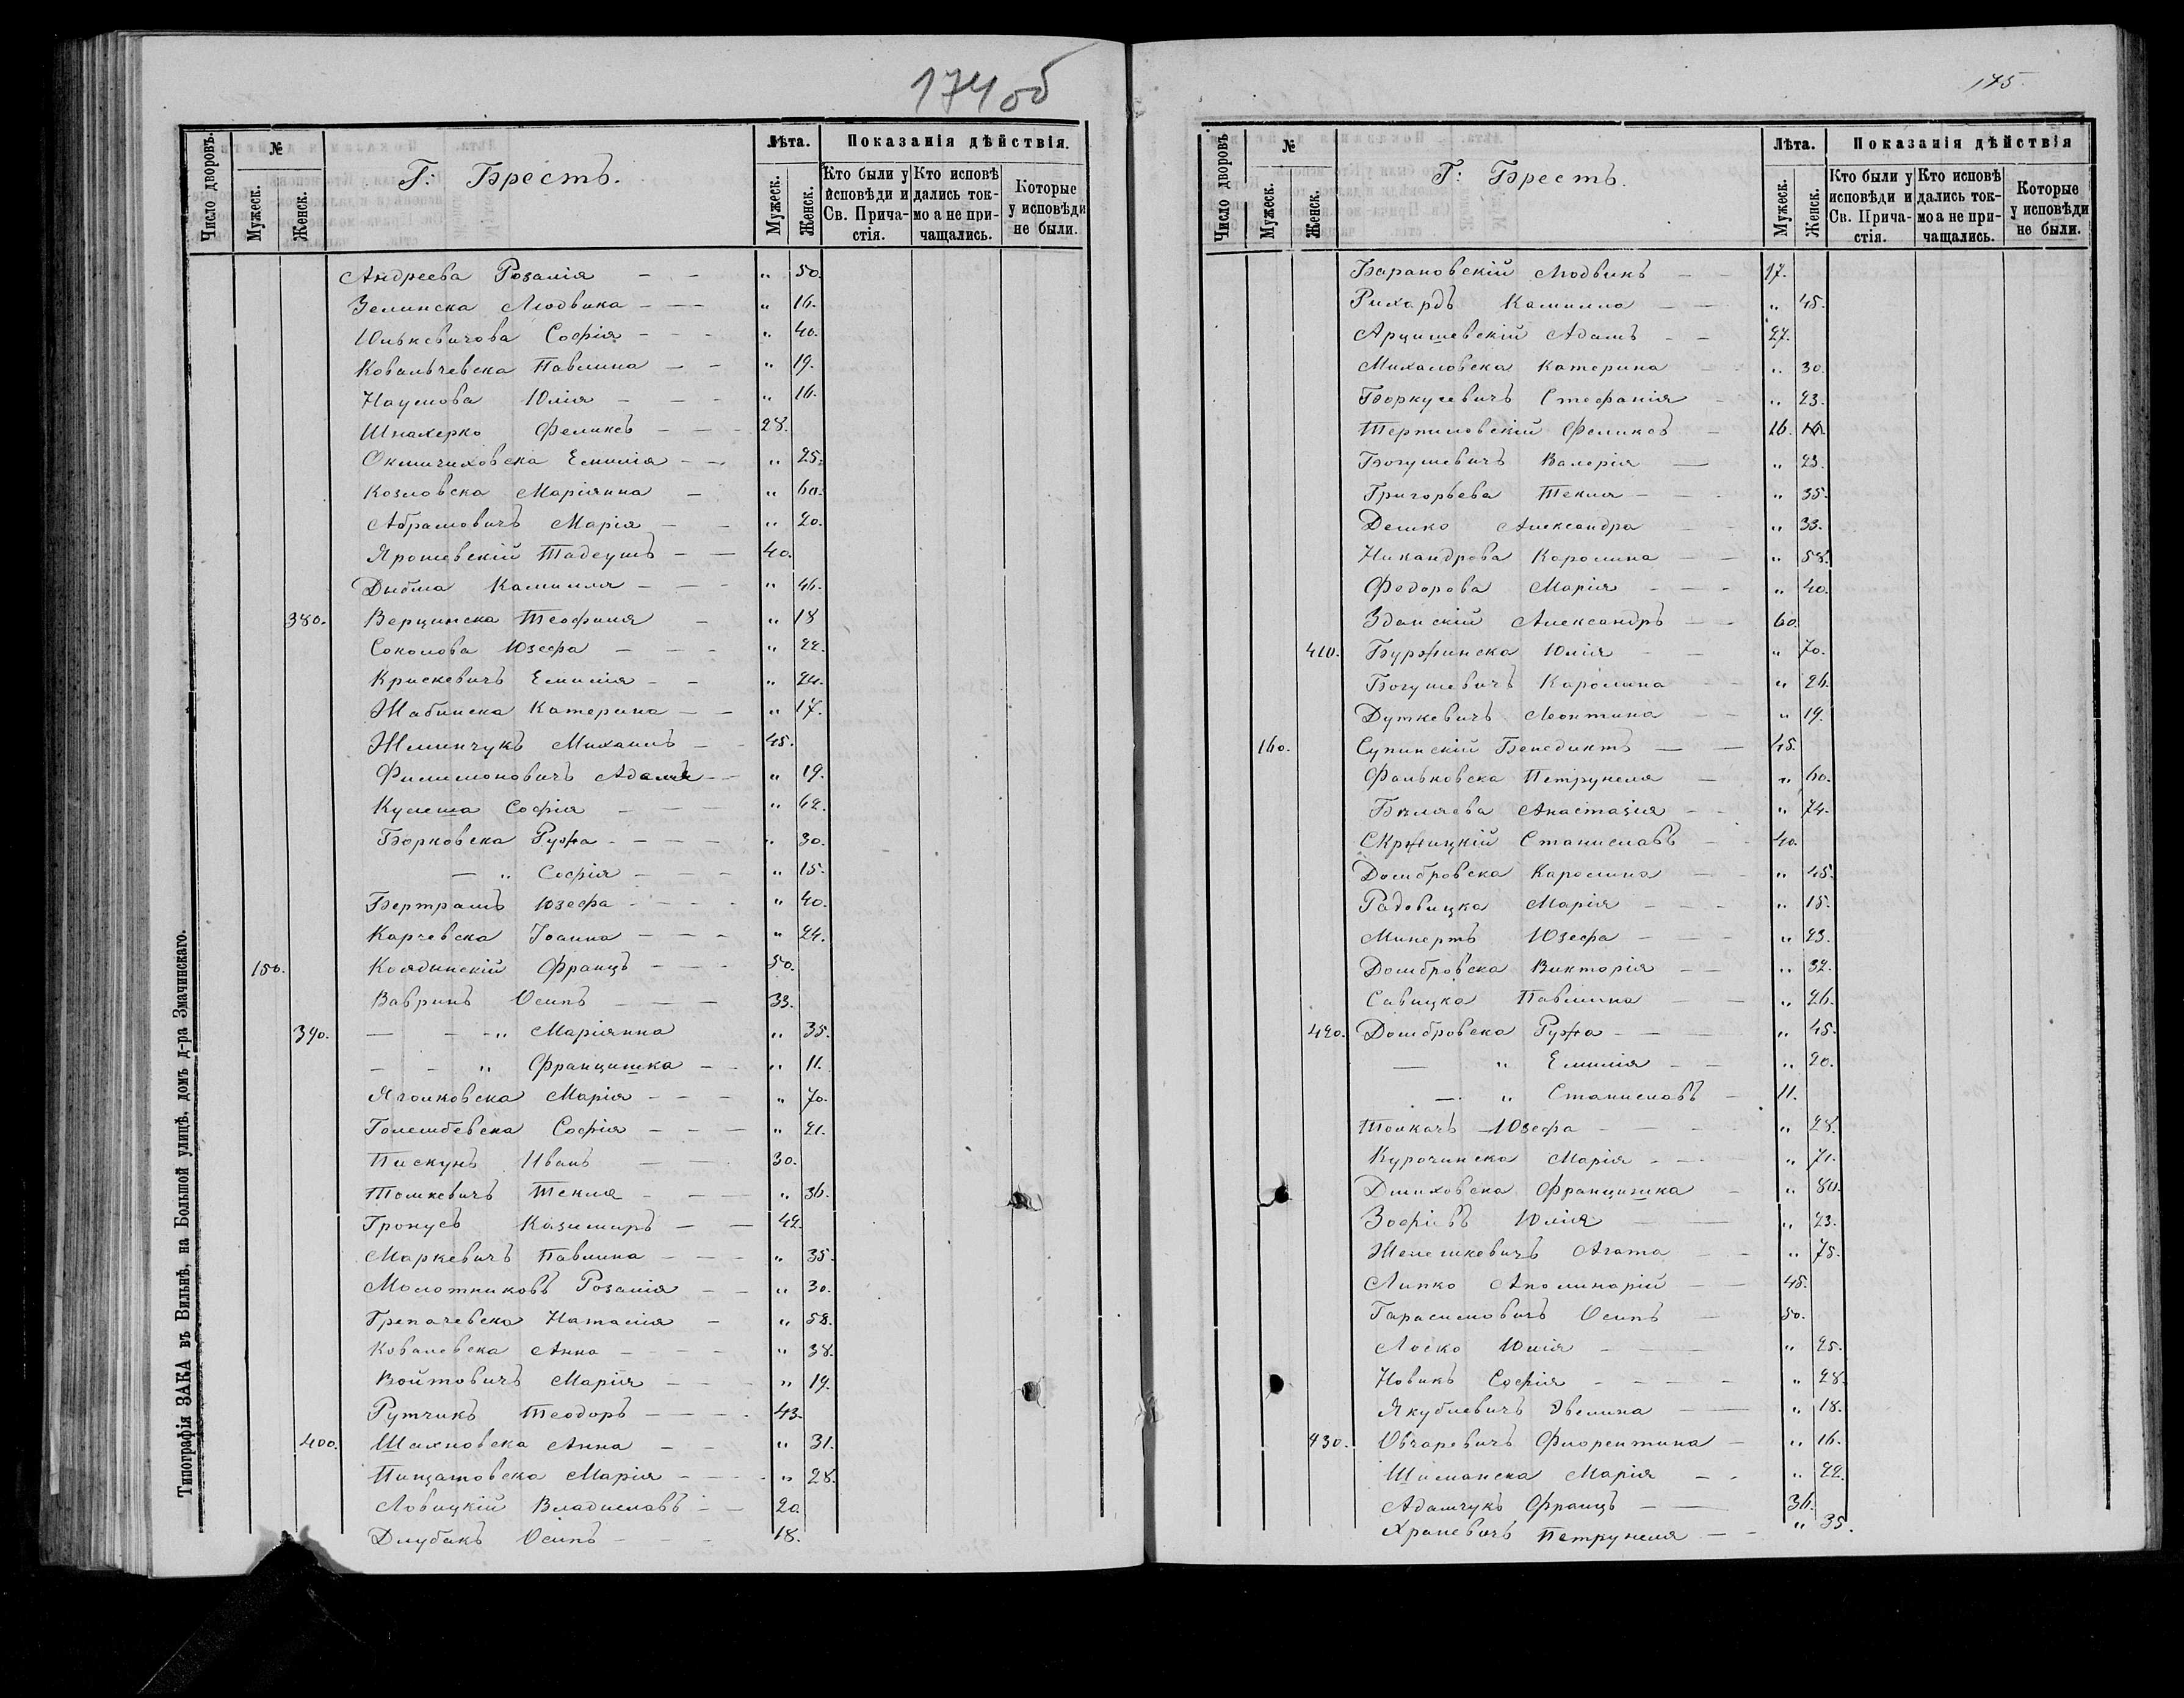 174 об
Число дворовъ. № Мужеск. Женск. Г: Брестъ. Лѣта. Мужеск. Женск. Показанія дѣйствія. Кто были у исповѣди и Св. Прича-стія. Кто исповѣ дались ток-мо а не при-чащались. Которые у исповѣди не были.
Андреева Розалія — — " 50.
Зелинска Людвика — — " 16.
Юлькевичова Софія — — " 40.
Ковальчевска Павлина — — " 19.
Наумова Юлія — — " 16.
Шпахерко Феликсъ — — 28.
Окминиховска Емилія — — " 25.
Козловска Маріянна — " 60.
Абрамовичъ Марія — — " 20.
Ярошевскій Тадеушъ — — 40.
Дыбла Камилля — — " 46.
380. Верцинска Теофиля — " 18
Соколова Юзефа — — " 22.
Крискевичъ Емилія — — " 24.
Жабинска Катерина — — " 17.
Жминчукъ Михаилъ — 45.
Филимоновичъ Адаля — " 19.
Кулеша Софія — — " 62.
Борковска Ружа — — " 30.
— " Софія — — " 15.
Бертрамъ Юзефа — — " 40.
Карчевска Іоанна — — " 24.
150. Колдынскій Францъ — — 50.
Вавринъ Осипъ — — 33.
390. — — " Маріянна " 35.
— — " Францишка — — " 11.
Яголковска Марія — — " 70.
Голембевска Софія — — " 21.
Пискунъ Иванъ — — 30.
Томкевичъ Текля — — " 36.
Гронусъ Казимиръ — — 42.
Маркевичъ Павлина — — " 35.
Молотниковъ Розалія — — " 30.
Грепачевска Наталія — " 58.
Ковалевска Анна — — " 38.
Войтовичъ Марія — — " 19.
Рутчикъ Теодоръ — — 43.
400. Шахновска Анна — — " 31.
Пинцатовска Марія — — " 28.
Ловицкій Владиславъ — — 20.
Длубакъ Осипъ — — 18.
Типографія ЗАКА въ Вильнѣ, на Большой улицѣ, домъ д-ра Змачинскаго.
175.
Число дворовъ № Мужеск. Женск. Г: Брестъ. Лѣта. Мужеск. Женск. Показанія дѣйствія Кто были у исповѣди и Св. Прича-стія. Кто исповѣ дались ток-мо а не при-чащались. Которые у исповѣди не были.
Барановскій Людвикъ — — 17.
Рихардъ Камилла — — " 45.
Арцишевскій Адамъ — — 27.
Михаловска Катерина " 30.
Боркусевичъ Стефанія — " 23.
Терпиловскій Феликсъ — 16.
Богушевичъ Валерія — " 23.
Григорьева Текля — — " 35.
Демко Александра " 33.
Никандрова Каролина — — " 58.
Федорова Марія — — " 40.
Зданскій Александръ — — 60.
410. Буржинска Юлія — — " 70.
Богушевичъ Каролина — — " 26.
Дуткевичъ Леонтина — — " 19.
160. Супинскій Бенедиктъ — — 45.
Фальковска Петрунеля — " 60.
Бѣляева Анастазія — — " 74.
Скржицкій Станиславъ — 40.
Домбровска Каролина — — " 45.
Радовицка Марія — — " 15.
Минертъ Юзефа — — " 23.
Домбровска Викторія — — " 32.
Савицка Павлина — — " 26.
420. Домбровска Ружа — — " 45.
— " Емилія — — " 20.
— " Станиславъ — 11.
Толкачъ Юзефа — — " 28.
Курочинска Марія — — " 71.
Дмиховска Францишка — " 80.
Зофіевъ Юлія — — " 23.
Желешкевичъ Агата — — " 75.
Липко Аполинарій — 45.
Гарасимовичъ Осипъ — 50.
Лоско Юлія — — " 25.
Новикъ Софія — — " 28.
Якубчевичъ Эвелина — " 18.
430. Овчаревичъ Флорентина — " 16.
Шиманска Марія — — " 22.
Адамчукъ Францъ — — 36.
Храпевичъ Петрунеля — — " 35.